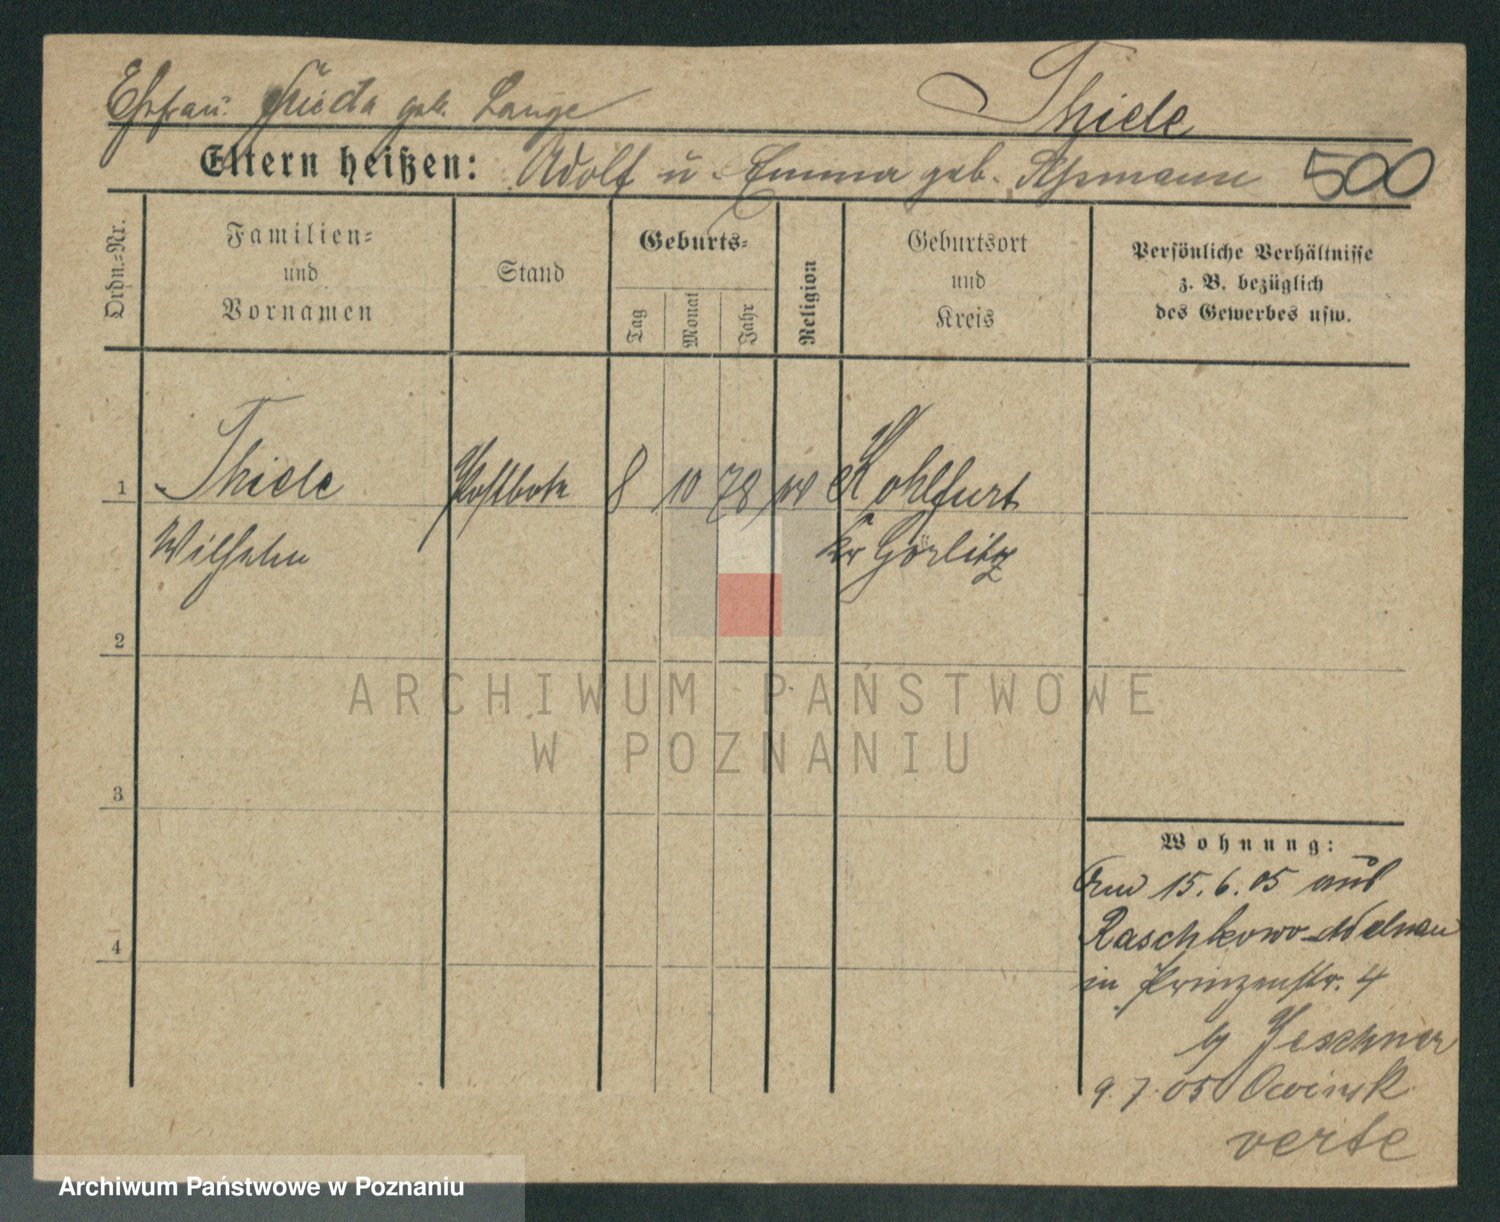 Ehefrau Frieda geb. Lange
Thiele
Eltern heißen: Adolf u. Emma geb. Aßmann
500
Ordn.=Nr.
Familien=
und
Vornamen
Stand
Geburts=
Tag
Monat
Jahr
Religion
Geburtsort
und
Kreis
Persönliche Verhältnisse
z. B. bezüglich
des Gewerbes usw.
1
Thiele
Postbote
8
10
78
ev
Kohlfurt
Wilhelm
Kr Görlitz
2
3
4
ARCHIWUM PAŃSTWOWE
W POZNANIU
Wohnung:
Am 15.6.05 aus
Raschkowo-Adelnau
in Prinzenstr. 4
by Jeschner
9.7.05 Owinsk
verte
Archiwum Państwowe w Poznaniu